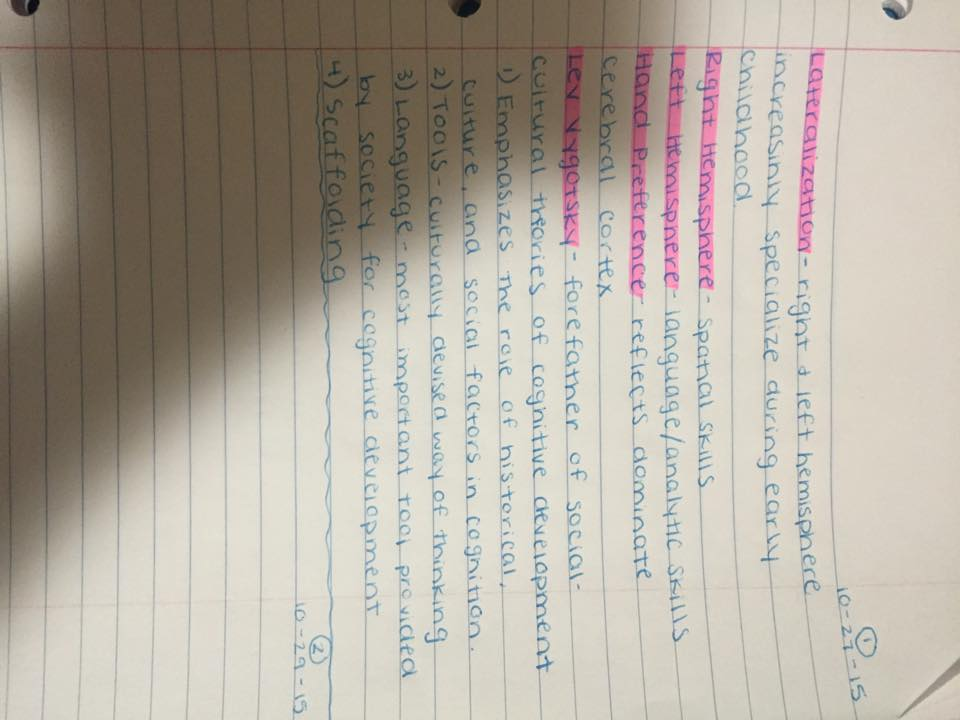 ①
10-27-15
Lateralization - right & left hemisphere
increasinly specialize during early
childhood
Right Hemisphere - spatial skills
Left Hemisphere - language/analytic skills
Hand Preference - reflects dominate
cerebral cortex
Lev Vygotsky - forefather of social-
cultural theories of cognitive development
1) Emphasizes the role of historical,
culture, and social factors in cognition.
2) Tools - culturally devised way of thinking
3) Language - most important tool provided
by society for cognitive development
4) Scaffolding
②
10-29-15